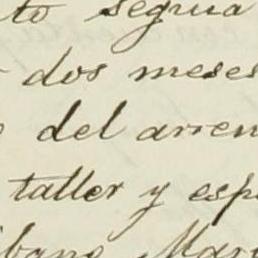 to segua
dos meses
del arren
taller y esp
bano Mar